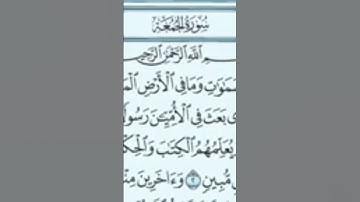 سُورَةُ الْجُمُعَةِ
ـمِ اللَّهِ الرَّحْمَٰنِ الرَّحِيمِ
ـمَٰوَٰتِ وَمَا فِي الْأَرْضِ الْمَـ
ـى بَعَثَ فِي الْأُمِّيِّـۧنَ رَسُولًا
يُعَلِّمُهُمُ الْكِتَٰبَ وَالْحِكْـ
مُّبِينٍ ٢ وَءَاخَرِينَ مِنْـ